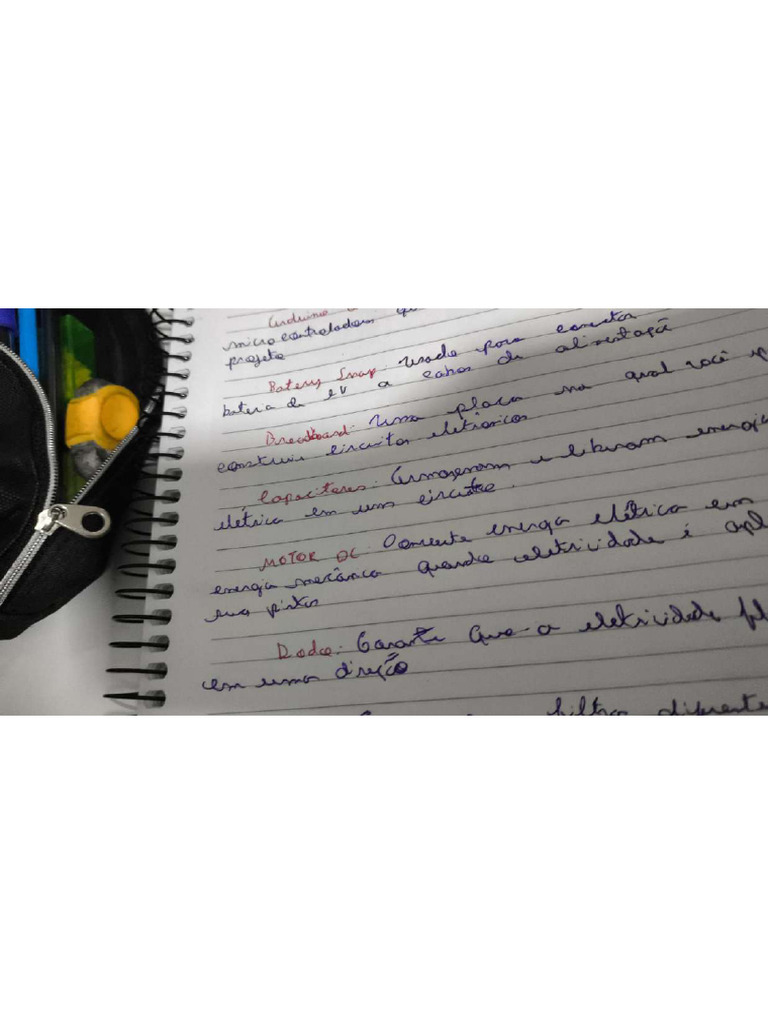 Arduino
microcontrolador
projeto
Batery Snap: Usado para conectar
bateria de 9V a cabos de alimentaçã
Breadboard: Uma placa na qual você
construir circuitos eletronicos
Capacitores: Armazenam e liberam energia
elétrica em um circuito.
MOTOR DC: Converte energia elétrica em
energia mecânica quando eletricidade é apl
sua
Diodo: Garante que a eletricidade fl
em uma direção
filtros diferente